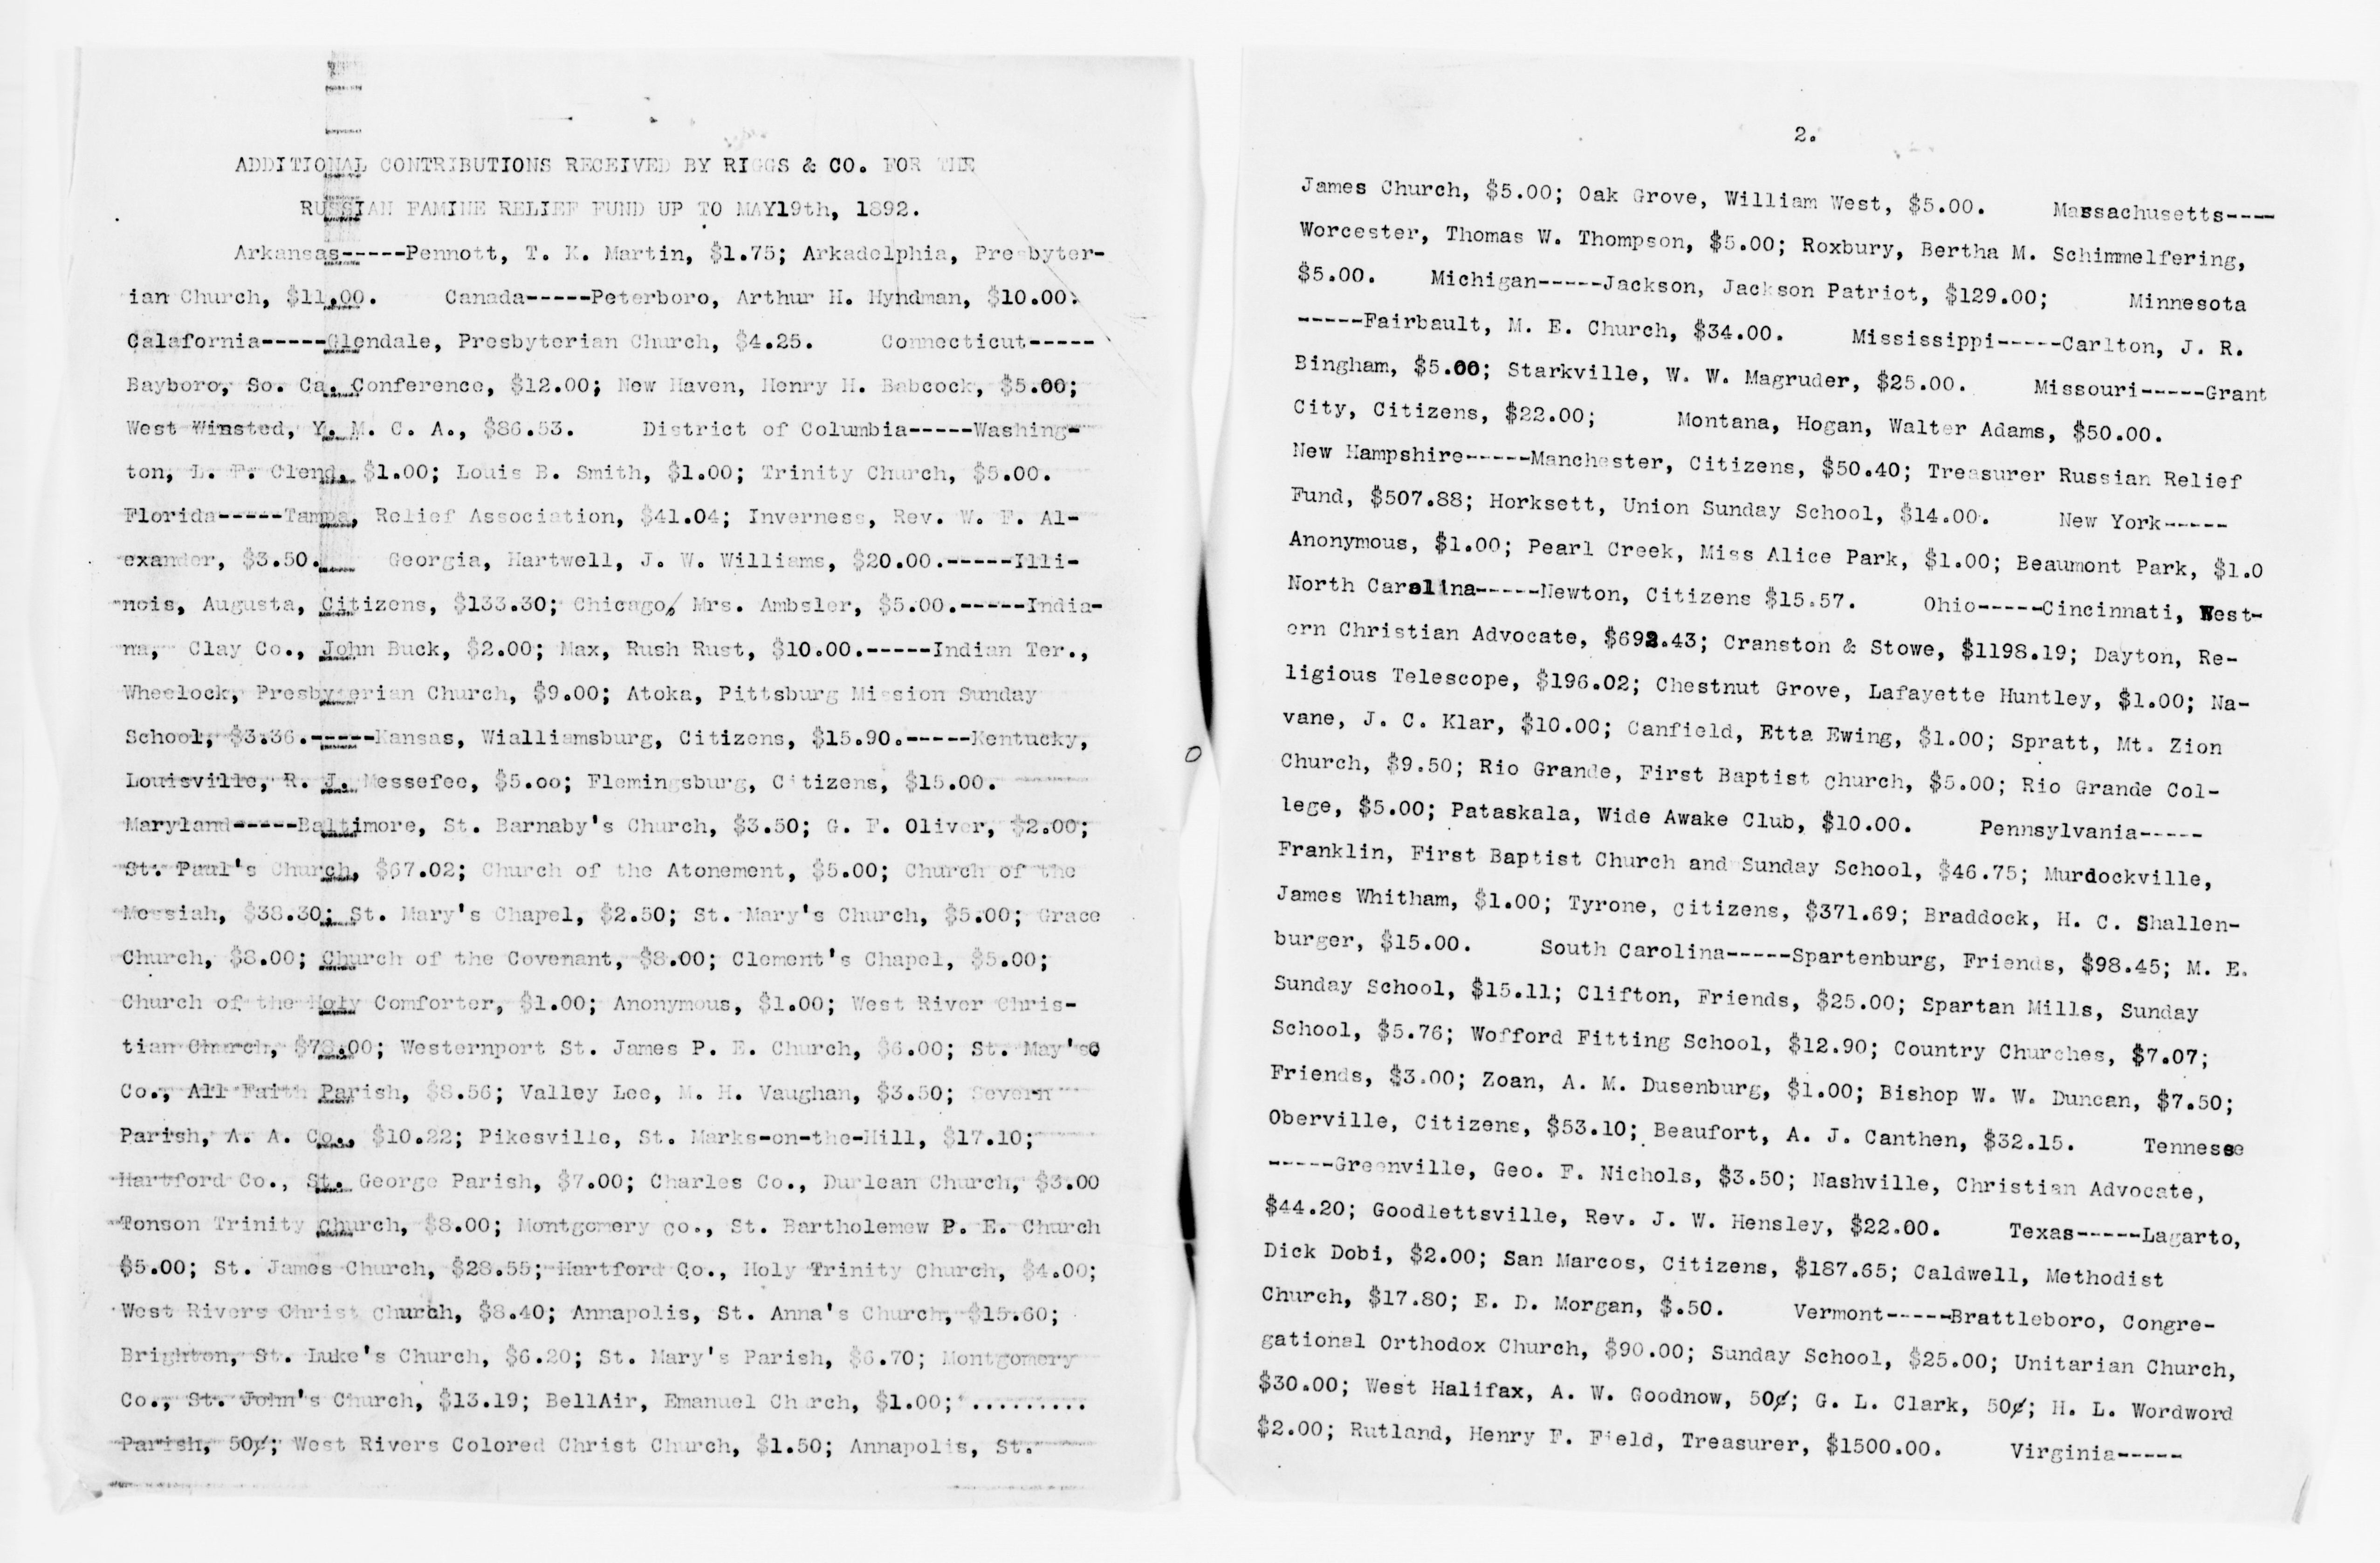 ADDITIONAL CONTRIBUTIONS RECEIVED BY RIGGS & CO. FOR THE
RUSSIAN FAMINE RELIEF FUND UP TO MAY19th, 1892.
Arkansas-----Pennott, T. K. Martin, $1.75; Arkadelphia, Presbyter-
ian Church, $11.00. Canada-----Peterboro, Arthur H. Hyndman, $10.00.
Calafornia-----Glendale, Presbyterian Church, $4.25. Connecticut-----
Bayboro, So. Ca. Conference, $12.00; New Haven, Henry H. Babcock, $5.00;
West Winsted, Y. M. C. A., $86.53. District of Columbia-----Washing-
ton, L. F. Clend, $1.00; Louis B. Smith, $1.00; Trinity Church, $5.00.
Florida-----Tampa, Relief Association, $41.04; Inverness, Rev. W. F. Al-
exander, $3.50. Georgia, Hartwell, J. W. Williams, $20.00.-----Illi-
nois, Augusta, Citizens, $133.30; Chicago, Mrs. Ambsler, $5.00.-----India-
na, Clay Co., John Buck, $2.00; Max, Rush Rust, $10.00.-----Indian Ter.,
Wheelock, Presbyterian Church, $9.00; Atoka, Pittsburg Mission Sunday
School, $3.36.-----Kansas, Wialliamsburg, Citizens, $15.90.-----Kentucky,
Louisville, R. J. Messefee, $5.oo; Flemingsburg, Citizens, $15.00.
Maryland-----Baltimore, St. Barnaby's Church, $3.50; G. F. Oliver, $2.00;
St. Paul's Church, $67.02; Church of the Atonement, $5.00; Church of the
Messiah, $38.30; St. Mary's Chapel, $2.50; St. Mary's Church, $5.00; Grace
Church, $8.00; Church of the Covenant, $8.00; Clement's Chapel, $5.00;
Church of the Holy Comforter, $1.00; Anonymous, $1.00; West River Chris-
tian Church, $78.00; Westernport St. James P. E. Church, $6.00; St. May's
Co., All Faith Parish, $8.56; Valley Lee, M. H. Vaughan, $3.50; Severn
Parish, A. A. Co., $10.22; Pikesville, St. Marks-on-the-Hill, $17.10;
Hartford Co., St. George Parish, $7.00; Charles Co., Durlean Church, $3.00
Tonson Trinity Church, $8.00; Montgomery co., St. Bartholemew P. E. Church
$5.00; St. James Church, $28.55; Hartford Co., Holy Trinity Church, $4.00;
West Rivers Christ church, $8.40; Annapolis, St. Anna's Church, $15.60;
Brighton, St. Luke's Church, $6.20; St. Mary's Parish, $6.70; Montgomery
Co., St. John's Church, $13.19; BellAir, Emanuel Church, $1.00; .........
Parish, 50¢; West Rivers Colored Christ Church, $1.50; Annapolis, St.
2.
James Church, $5.00; Oak Grove, William West, $5.00. Massachusetts----
Worcester, Thomas W. Thompson, $5.00; Roxbury, Bertha M. Schimmelfering,
$5.00. Michigan-----Jackson, Jackson Patriot, $129.00; Minnesota
-----Fairbault, M. E. Church, $34.00. Mississippi-----Carlton, J. R.
Bingham, $5.00; Starkville, W. W. Magruder, $25.00. Missouri-----Grant
City, Citizens, $22.00; Montana, Hogan, Walter Adams, $50.00.
New Hampshire-----Manchester, Citizens, $50.40; Treasurer Russian Relief
Fund, $507.88; Horksett, Union Sunday School, $14.00. New York-----
Anonymous, $1.00; Pearl Creek, Miss Alice Park, $1.00; Beaumont Park, $1.0
North Carolina-----Newton, Citizens $15.57. Ohio-----Cincinnati, West-
ern Christian Advocate, $692.43; Cranston & Stowe, $1198.19; Dayton, Re-
ligious Telescope, $196.02; Chestnut Grove, Lafayette Huntley, $1.00; Na-
vane, J. C. Klar, $10.00; Canfield, Etta Ewing, $1.00; Spratt, Mt. Zion
Church, $9.50; Rio Grande, First Baptist church, $5.00; Rio Grande Col-
lege, $5.00; Pataskala, Wide Awake Club, $10.00. Pennsylvania-----
Franklin, First Baptist Church and Sunday School, $46.75; Murdockville,
James Whitham, $1.00; Tyrone, citizens, $371.69; Braddock, H. C. Shallen-
burger, $15.00. South Carolina-----Spartenburg, Friends, $98.45; M. E.
Sunday School, $15.11; Clifton, Friends, $25.00; Spartan Mills, Sunday
School, $5.76; Wofford Fitting School, $12.90; Country Churches, $7.07;
Friends, $3.00; Zoan, A. M. Dusenburg, $1.00; Bishop W. W. Duncan, $7.50;
Oberville, Citizens, $53.10; Beaufort, A. J. Canthen, $32.15. Tennesee
-----Greenville, Geo. F. Nichols, $3.50; Nashville, Christian Advocate,
$44.20; Goodlettsville, Rev. J. W. Hensley, $22.00. Texas-----Lagarto,
Dick Dobi, $2.00; San Marcos, Citizens, $187.65; Caldwell, Methodist
Church, $17.80; E. D. Morgan, $.50. Vermont-----Brattleboro, Congre-
gational Orthodox Church, $90.00; Sunday School, $25.00; Unitarian Church,
$30.00; West Halifax, A. W. Goodnow, 50¢; G. L. Clark, 50¢; H. L. Wordword
$2.00; Rutland, Henry F. Field, Treasurer, $1500.00. Virginia-----